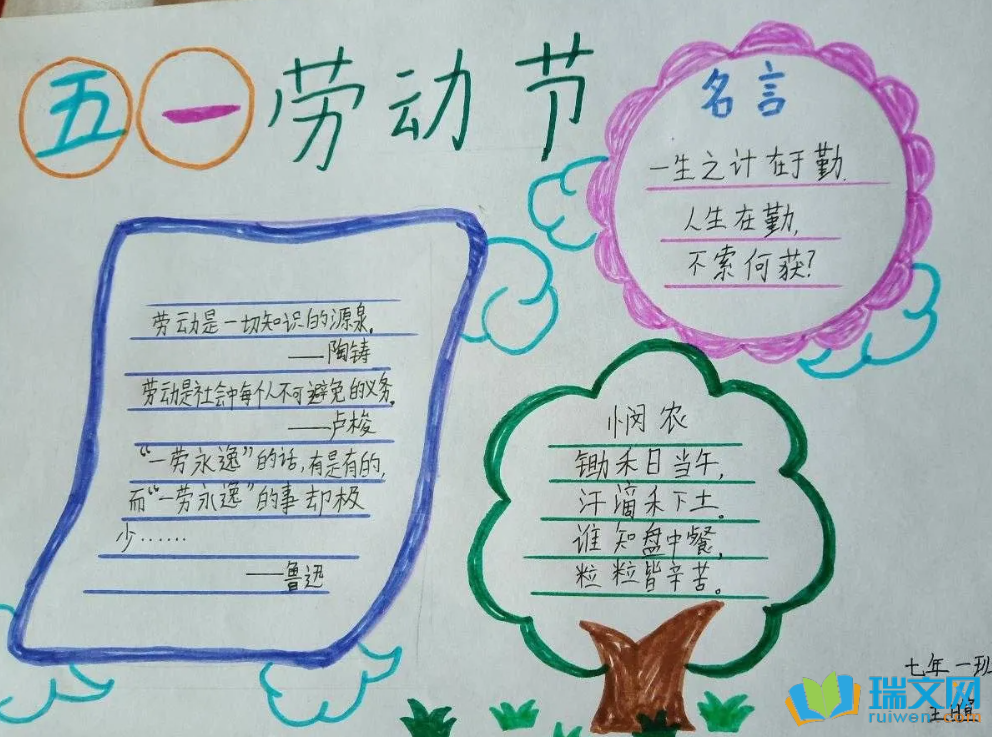 五一劳动节
名言
一生之计在于勤.
人生在勤,
不索何获?
劳动是一切知识的源泉。
——陶铸
劳动是社会中每个人不可避免的义务。
——卢梭
“一劳永逸”的话,有是有的,
而“一劳永逸”的事却极
少……
——鲁迅
悯农
锄禾日当午,
汗滴禾下土。
谁知盘中餐,
粒粒皆辛苦。
七年一班
瑞文网
ruiwen